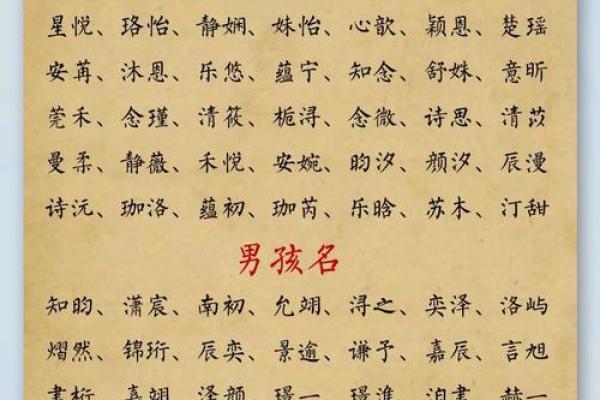 星悦、珞怡、静娴、妹怡、心歆、颖恩、楚瑶
安苒、沐恩、乐悠、蕴宁、知念、舒姝、意昕
莞禾、念瑾、清筱、栀浔、念微、诗思、清苡
曼柔、静薇、禾悦、安婉、昀汐、颜汐、辰漫
诗沅、珈洛、蕴初、珈芮、乐晗、苏木、汀甜
男孩名
知昀、潇宸、南初、允翊、浔之、奕泽、洛屿
熠然、锦珩、辰奕、景逾、谦予、嘉辰、言旭
书桁、嘉翊、泽颜、璟一、璟淮、泊书、赫一